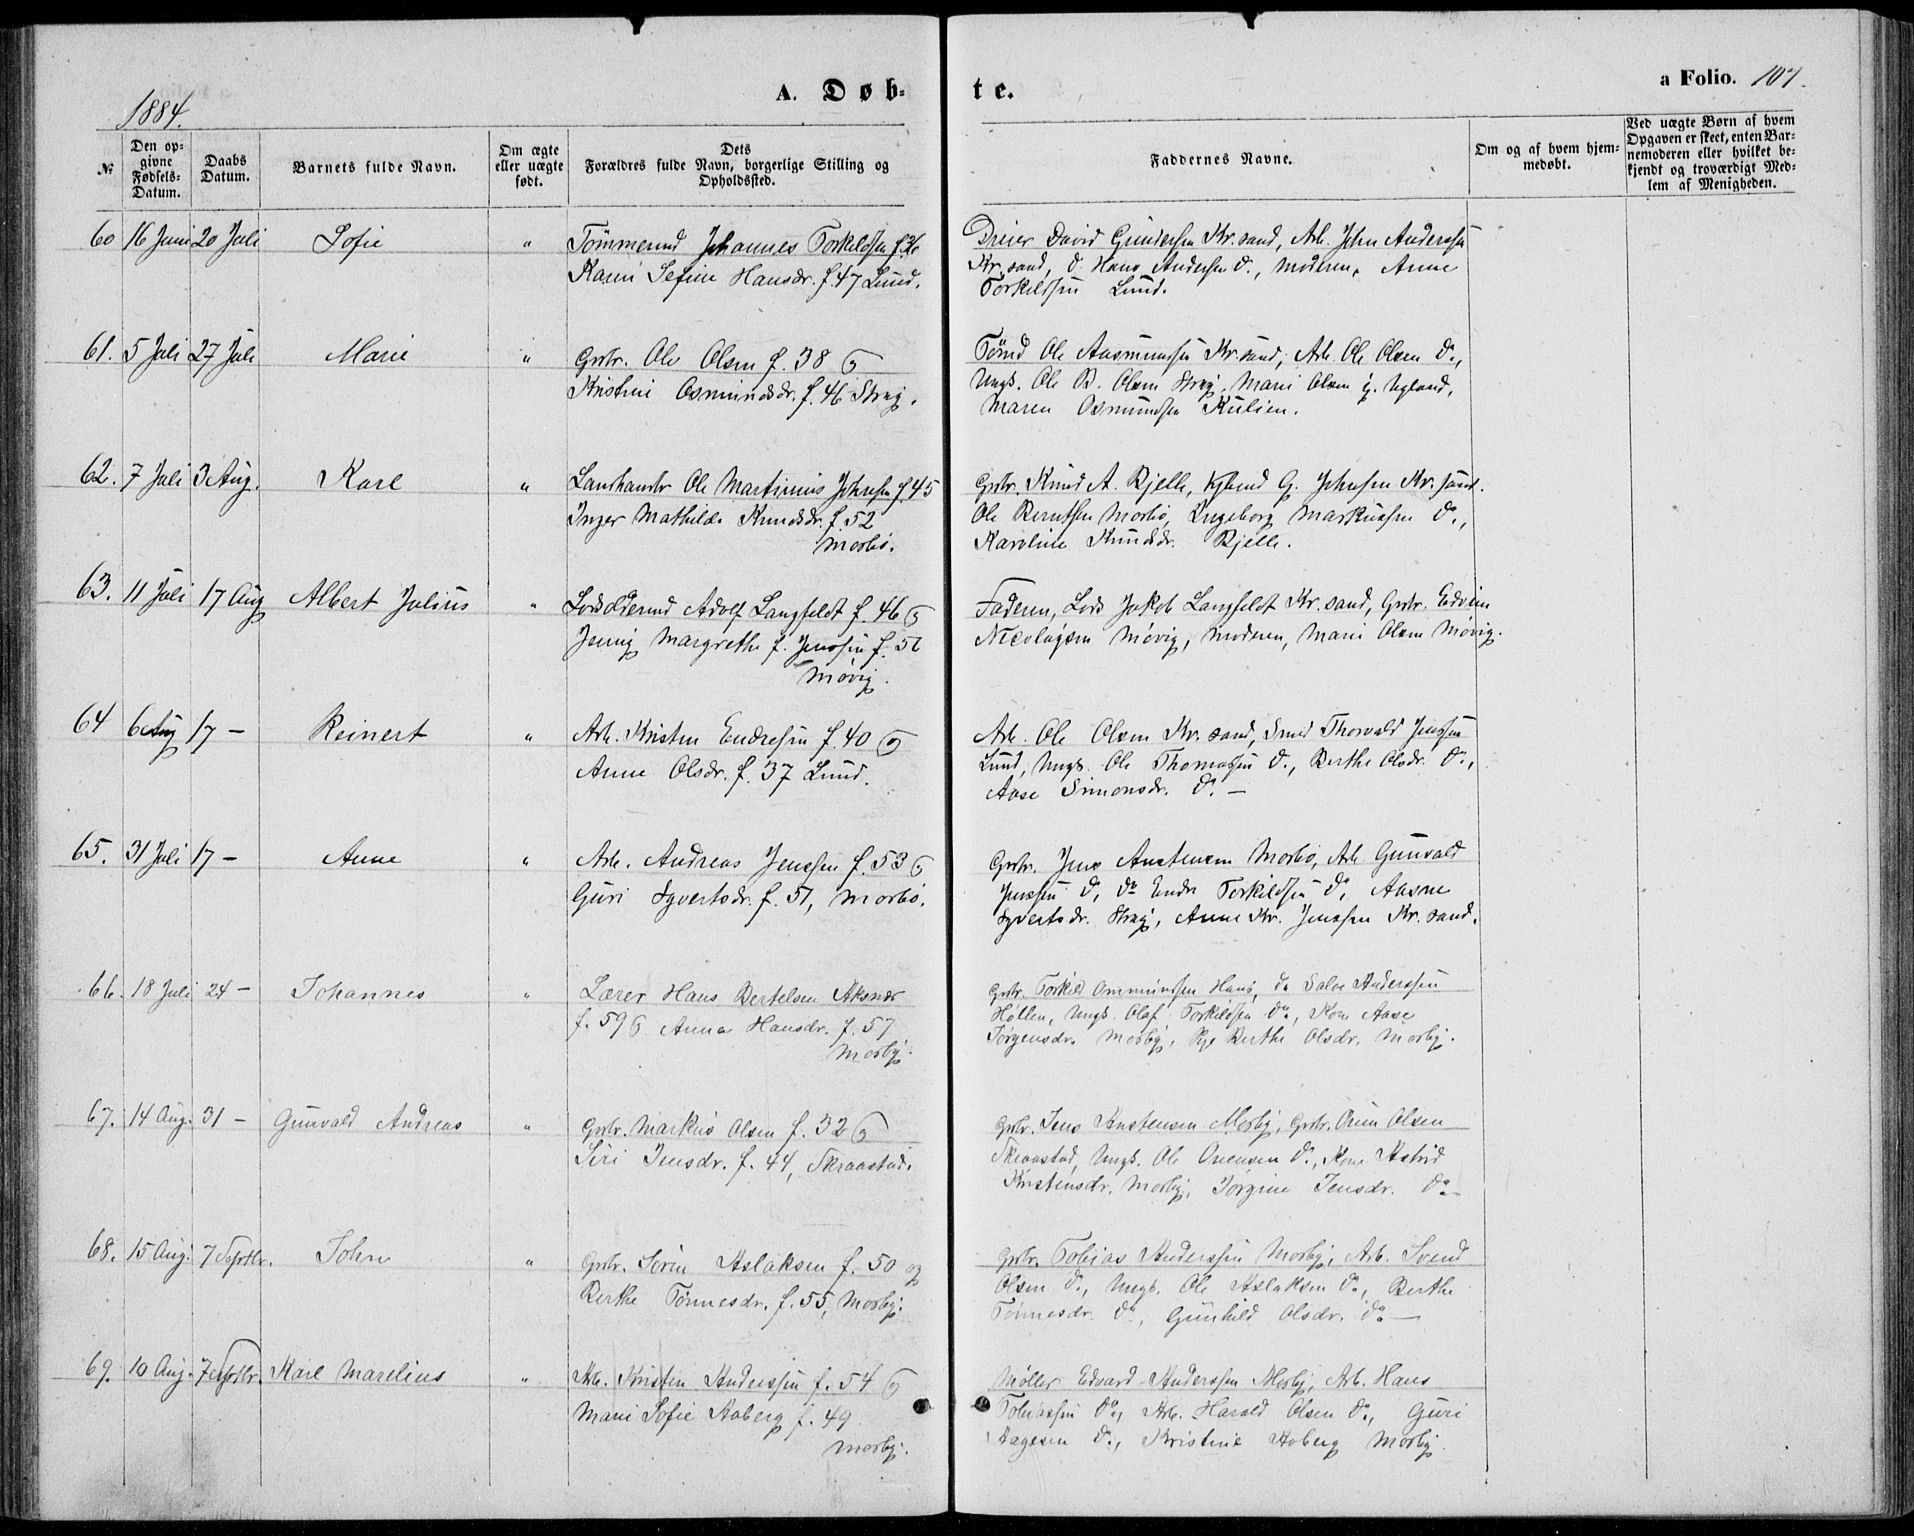 1884.
A. Døb-
te.
a Folio. 107.
№
Den op-
givne
Fødsels-
Datum.
Daabs
Datum.
Barnets fulde Navn.
Om ægte
eller uægte
født.
Dets
Forældres fulde Navn, borgerlige Stilling og
Opholdssted.
Faddernes Navne.
Om og af hvem hjem-
medøbt.
Ved uægte Børn af hvem
Opgaven er skeet, enten Bar-
nemoderen eller hvilket be-
kjendt og troværdigt Med-
lem af Menigheden.
60 16 Juni 20 Juli Sofie " Tømmermd Johannes Torkildsen f.
Karni Sefine Hansdr. f. 47 Lund.
Dreier David Gundersen Kr.sand, Arb. John Anderssen
Kr.sand, d. Hans Andersen do., Moderen, Anne
Torkildsen Lund.
61. 5 Juli 27 Juli Marie " Grbr. Ole Olsen f. 38 og
Kristini Osmundsdr. f. 46 Strøj.
Tømd Ole Aasmundsen Kr.sand, Arb. Ole Olsen do.,
Ungk. Ole B. Olsen Strøj, Marie Olsen Ugland,
Maren Osmundsen Kulien.
62. 7 Juli 3 Aug. Karl " Landhandlr Ole Martinius Johnsen f 45
Inger Mathilde Knudsdr. f. 52
Mosbø.
Grbr. Knud A. Bjelle, G. Johnsen Kr.sand.
Ole Berntsen Mosbø, Ingeborg Markussen do.,
Karoline Knudsdr. Bjelle.
63. 11 Juli 17 Aug Albert Julius " Lodsoldermd Adolf Langfeldt f. 46 og
Jenny Margrethe f. Jenssen f. 56
Møvig.
Faderen, Lods Jakob Langfeldt Kr.sand, Grbr. Edvin
Nicolaysen Møvig, Moderen, Marie Olsen Møvig.
64 6 Aug 17 - Reinert " Arb. Kristen Endresen f. 40 og
Anne Olsdr. f. 37 Lund.
Arb. Ole Olsen Kr.sand, Smed Thorvald Jenssen
Lund, Ungk. Ole Thomassen do., Berthe Olsdr. do.,
Aase Simonsdr. do. -
65. 31 Juli 17 - Anne " Arb. Andreas Jenssen f. 53 og
Guri Syvertsdr. f. 51, Mosbø.
Grbr. Jens Anstensen Mosbø, Arb. Gunvald
Jenssen do, do Endre Torkildsen do, Aasne
Syvertsdr. Strøj, Anne Kr. Jenssen Kr.sand.
66. 18 Juli 24 - Johannes " Lærer Hans Bertelsen Aksnes
f. 59 og Anna Hansdr. f. 57
Mosby.
Grbr. Torkild Ommundsen Haus, do Salve Anderssen
Høllen, Ungk. Olaf Torkildsen do, Kone Aase
Jørgensdr. Mosby, Pige Berthe Olsdr. Mosby.
67. 14 Aug. 31 - Gunvald Andreas " Grbr. Markus Olsen f. 32 og
Siri Jensdr. f. 44, Skraastad.
Grbr. Jens Anstensen Mosby, Grbr. Onen Olsen
Skraastad, Ungk. Ole Onensen do., Kone Astrid
Kristensdr. Mosby, Jørgine Jensdr. do -
68. 15 Aug. 7 Septbr. John " Grbr. Søren Aslaksen f. 50 og
Berthe Tønnesdr. f. 55, Mosby.
Grbr. Tobias Anderssen Mosby, Arb. Svend
Olsen do., Ungk. Ole Aslaksen do, Berthe
Tønnesdr. do, Gunhild Olsdr. do -
69. 10 Aug. 7 Septbr. Karl Marelius " Arb. Kristen Anderssen f. 54 og
Marie Sofie Aaberg f. 49
Mosby.
Møller Edvard Anderssen Mosby, Arb. Hans
Tobiassen do, Arb. Harald Olsen do., Guri
Aagesen do., Kristine Aaberg Mosby.